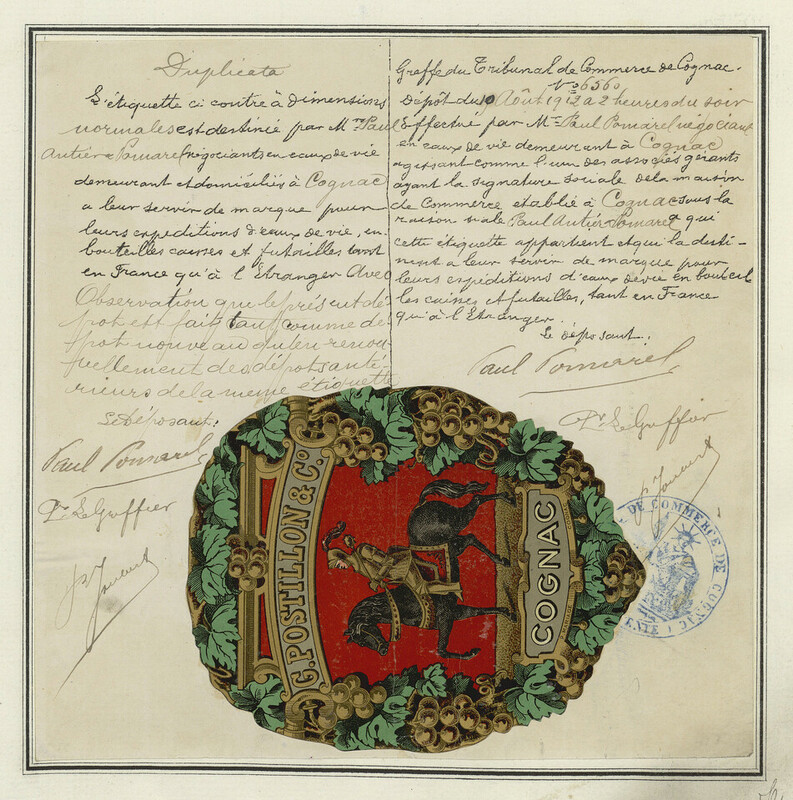 Duplicata
L'étiquette ci contre à dimensions
normales est destinée par Mrs Paul
Antier & Pomarel négociants en eaux de vie
demeurant et domiciliés à Cognac
a leur servir de marque pour
leurs expéditions d'eaux de vie, en
bouteilles caisses et futailles tant
en France qu'à l'Etranger Avec
Observation que le présent dé
pôt est fait tant comme dé
pôt nouveau qu'en renou
vellement des dépôts anté
rieurs de la même étiquette
Le Déposant:
Paul Pomarel
Pr Le Greffier
Greffe du Tribunal de Commerce de Cognac.
No 6560
Dépôt du 10 Août 1912 à 2 heures du soir
Effectué par Mr Paul Pomarel négociant
en eaux de vie demeurant à Cognac
agissant comme l'un des associés gérants
ayant la signature sociale de la maison
de Commerce établie à Cognac sous la
raison sociale Paul Antier Pomarel & qui
cette étiquette appartient et qui la desti-
nent a leur servir de marque pour
leurs expéditions d'eaux de vie en bouteil
les caisses et futailles, tant en France
qu'à l'Etranger.
Le déposant:
Paul Pomarel
Pr Le Greffier
G. POSTILLON & Co
COGNAC
DE COMMERCE DE COGNAC